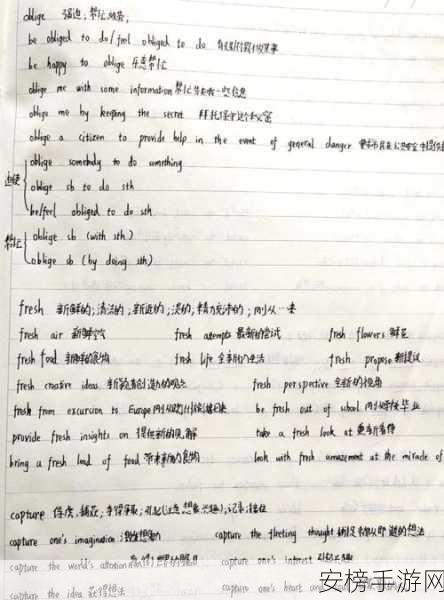 oblige 强迫；帮忙效劳；
be obliged to do/feel obliged to do
be happy to oblige 乐意帮忙
oblige me with some information 帮忙告诉我一些信息
oblige me by keeping the secret 拜托保守这个秘密
oblige a citizen to provide help in the event of general danger
迫使
oblige somebody to do something
oblige sb to do sth
be/feel obliged to do sth
帮忙
oblige sb (with sth)
oblige sb (by doing sth)
fresh 新鲜的；清洁的；新近的；淡的；精力充沛的；刚从…来
fresh air 新鲜空气 fresh attempts 最新的尝试 fresh flowers 鲜花
fresh food 新鲜的食物 fresh life 全新的生活 fresh propose 新提议
fresh creative ideas 新颖有创造力的观点 fresh perspective 全新的视角
fresh from excursion to Europe be fresh out of school 刚从学校毕业
provide fresh insights on 提供新的见解 take a fresh look at 重新看待
bring a fresh load of food 带来新的食物 look with fresh amazement at the miracle of
capture 俘虏；捕获；夺得；引起(注意 想象 兴趣)；记录；
capture one's imagination capture the fleeting thought
capture the world's attention capture one's interest 引起兴趣
capture the idea 获得想法 capture one's heart and
安榜手游网